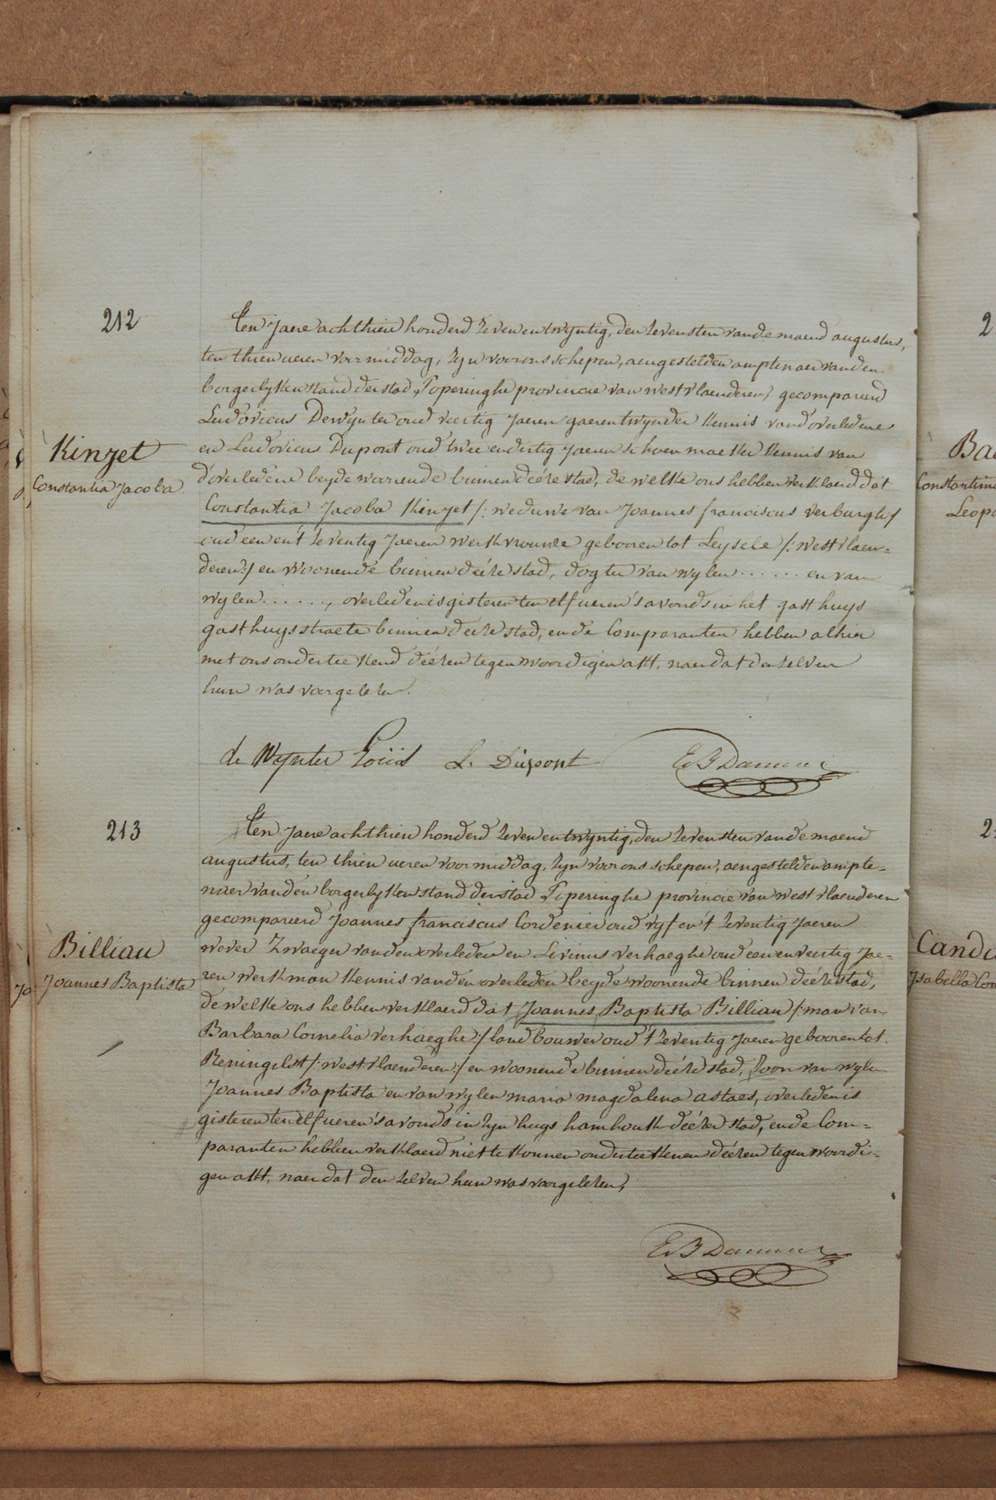 212
Kinzet
Constantia Jacoba
Ten Jaere achthien honderd zeven en twyntig, den zevensten van de maend augustus,
ten thien ueren voormiddag, zyn voor ons schepen, aengestelden amptenaer van den
borgerlyken stand der stad Poperinghe provincie van westvlaenderen, gecompareerd
Ludovicus Dewynter oud veertig Jaeren gaerentwynder Kennis van d'overledene
en Ludovicus Dupont oud twee en dertig Jaeren schoenmaeker Kennis van
d'overledene beyde woonende binnen deéze stad, de welke ons hebben verklaerd dat
Constantia Jacoba Kinzet /: weduwe van Joannes franciscus verburgh :/
oud een en t'zeventig Jaeren werkvrouwe gebooren tot Leysele /: westvlaen-
deren :/ en woonende binnen deéze stad, dogter van wylen ...... en van
wylen ......, overleden is gisteren ten elf ueren s'avonds in het gasthuys
gasthuysstraete binnen deéze stad, en de Comparanten hebben alhier
met ons onderteekend deézen tegenwoordigen akt, naer dat den zelven
hun was voorgelezen.
de Wynter Loüis L. Dupont
213
Billiau
Joannes Baptista
Ten Jaere achthien honderd zeven en twyntig, den zevensten van de maend
augustus, ten thien ueren voormiddag, zyn voor ons schepen, aengestelden ampte-
naer van den borgerlyken stand der stad Poperinghe provincie van westvlaenderen
gecompareerd Joannes franciscus Cordenier oud vyf en t'zeventig Jaeren
wever Zwaeger van den overleden en Livinus verhaeghe oud een en veertig Jae-
ren werkman Kennis van den overleden beyde woonende binnen deéze stad,
de welke ons hebben verklaerd dat Joannes Baptista Billiau /: man van
Barbara Cornelia verhaeghe :/ landbouwer oud t'zeventig Jaeren gebooren tot
Reningelst /: westvlaenderen :/ en woonende binnen deéze stad, Zoon van wylen
Joannes Baptista en van wylen maria magdalena astaes, overleden is
gisteren ten elf ueren s'avonds in zyn huys hamhoek deézer stad, en de Com-
paranten hebben verklaerd niet te konnen onderteekenen deézen tegenwoordi-
gen akt, naer dat den zelven hun was voorgelezen,